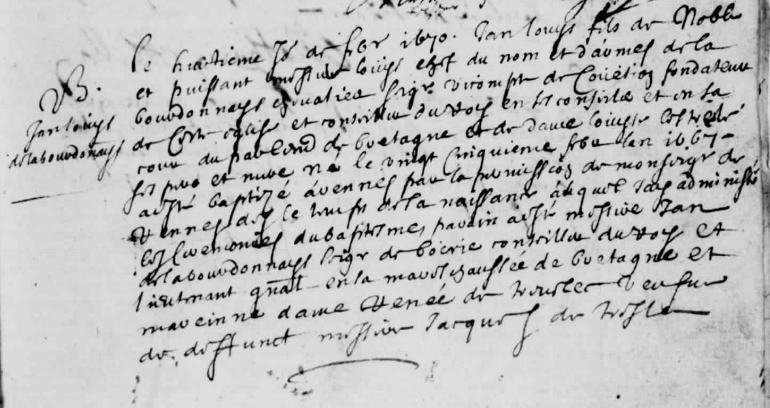 B.
Jan louys
de la bourdonnays
le huictieme Jr de febr 1670. Jan louys fils de Noble
et puissant messire louys chef du nom et darmes de la
bourdonnays chevalier seigr vicompte de Couetion fondateur
de Cette eglise et conseiller du Roy en ses conseils et en sa
cour du parlemt de bretagne et de dame louyse
ses pere et mere né le vingt Cinquieme febr lan 1667
acté baptizé a vennes par la permission de monseigr de
Vennes des le temps de la naissance auquel Jay administré
les ceremonies du baptesme, parain acté messire Jan
de la bourdonnays seigr de conseiller du Roy et
lieutenant gnal en la marechaussée de bretagne et
mareinne dame Renée de veufue
de deffunct messire Jacques de